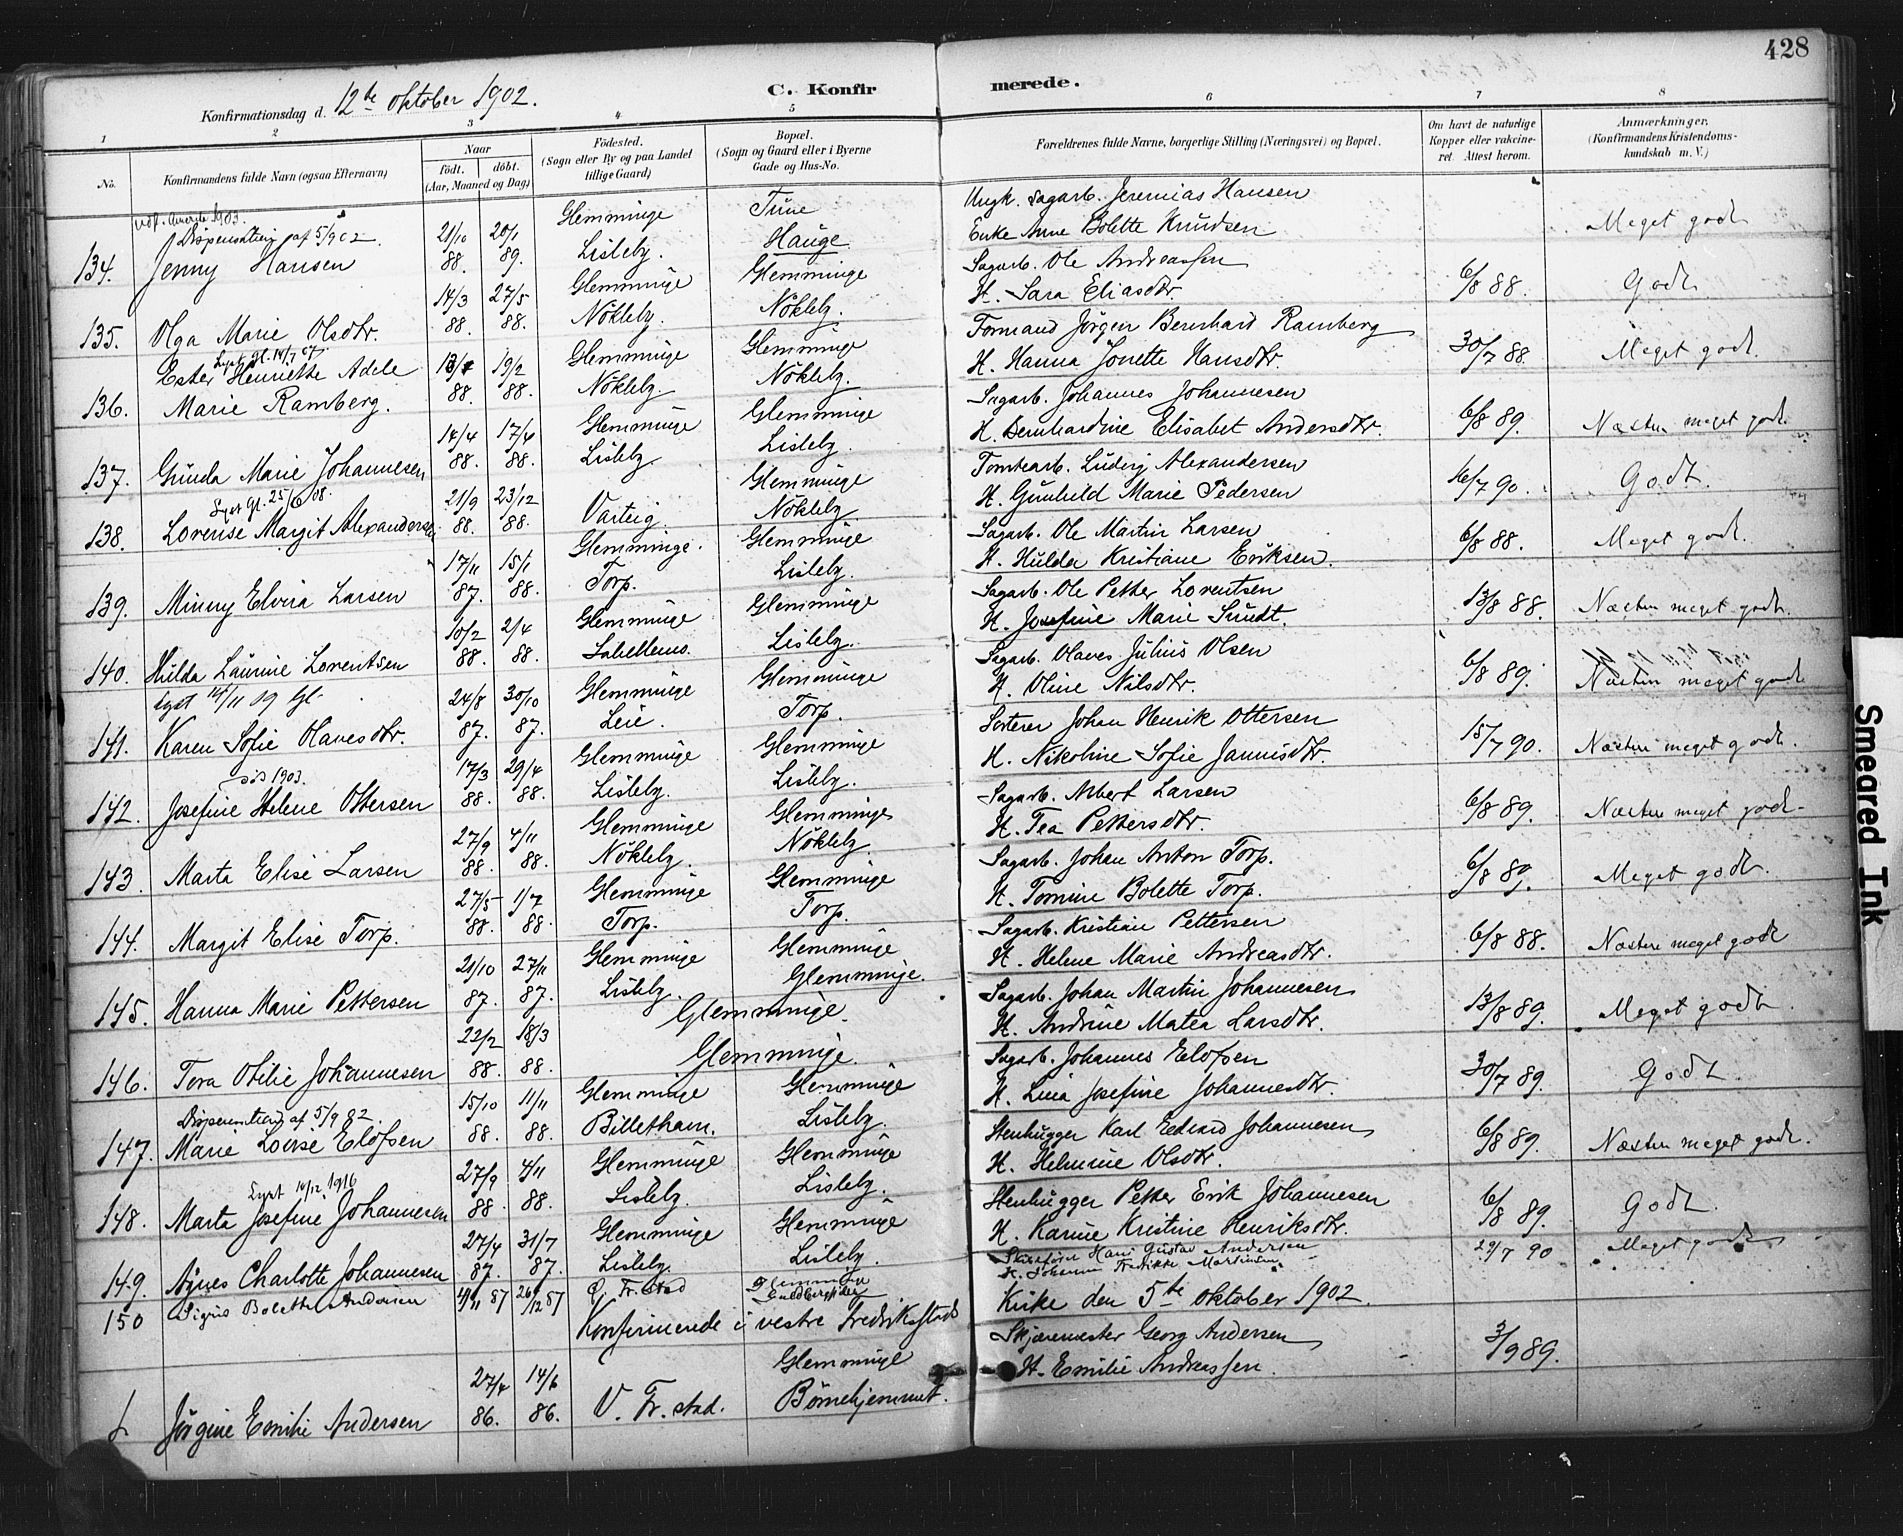 428
Konfirmationsdag d. 12te Oktober 1902.
C. Konfirmerede.
1 2 3 4 5 6 7 8
No.
Konfirmandens fulde Navn (ogsaa Efternavn)
Naar
født. døbt.
(Aar, Maaned og Dag)
Fødested.
(Sogn eller By og paa Landet
tillige Gaard)
Bopæl.
(Sogn og Gaard eller i Byerne
Gade og Hus-No.
Forældrenes fulde Navne, borgerlige Stilling (Næringsvei) og Bopæl.
Om havt de naturlige
Kopper eller vakcine-
ret. Attest herom.
Anmærkninger.
(Konfirmandens Kristendoms-
kundskab m. V.)
1903.
Dispensation af 5/9 02. 21/10 20/1 Glemminge Tune Ungk. Sagarb. Jeremias Hansen
134. Jenny Hansen 88. 89. Lisleby. Hauge Enke Anne Bolette Knudsen Meget godt
14/3 27/5 Glemminge Glemminge Sagarb. Ole Andreassen
135. Olga Marie Olsdtr. 88. 88. Nökleby. Nökleby. H. Sara Eliasdtr. 6/8 88. Godt
Lyst Gl. 14/7 07.
Ester Henriette Adele 19/2 Glemminge Glemminge Formand Jörgen Bernhard Ramberg
136. Marie Ramberg. 88. 88. Nökleby. Nökleby. H. Hanna Jonette Hansdtr. 30/7 88. Meget godt.
14/4 17/4 Glemminge Glemminge Sagarb. Johannes Johannesen
137. Gunda Marie Johannesen 88. 88. Lisleby. Lisleby. H. Bernhardine Elisabet Andersdtr. 6/8 89. Næsten meget godt.
Lyst Gl. 25/6 08.
21/9 23/12 Glemminge Tomtearb. Ludvig Alexandersen
138. Lovense Margit Alexandersen 88. 88. Varteig. Nökleby. H. Gunhild Marie Pedersen 16/7 90. Godt.
17/11 15/1 Glemminge. Glemminge Sagarb. Ole Martin Larsen
139. Minny Elvira Larsen 87. 88. Torp. Lisleby. H. Hulda Kristiane Eriksen. 6/8 88. Meget godt.
10/2 2/4 Glemminge Glemminge Sagarb. Ole Petter Lorentsen
140. Hilda Laurine Lorentsen 88. 88. Lisleby. H. Josefine Marie Sundt. 13/8 88. Næsten meget godt.
lyst 14/11 19 Gl. 24/8 30/10 Glemminge Glemminge Sagarb. Olaves Julius Olsen
141. Karen Sofie Olavesdtr. 87. 87. Leie. Torp. H. Oline Nilsdtr. 6/8 89. Næsten meget godt
1903. 17/3 29/4 Glemminge Glemminge Sorterer Johan Henrik Ottersen
142. Josefine Helene Ottersen 88. 88. Lisleby. Lisleby. H. Nikoline Sofie Jannisdtr. 15/7 90. Næsten meget godt.
27/9 4/11 Glemminge Glemminge Sagarb. Albert Larsen
143. Marta Elise Larsen 88. 88. Nökleby. Nökleby H. Tea Pettersdtr. 6/8 89. Næsten meget godt.
27/5 1/7 Glemminge Glemminge Sagarb. Johan Anton Torp.
144. Margit Elise Torp. 88. 88. Torp. Torp. H. Tomine Bolette Torp. 6/8 89. Meget godt.
21/10 27/11 Glemminge Glemminge Sagarb. Kristian Pettersen
145. Hanna Marie Pettersen 87. 87. Lisleby. Glemminge. H. Helene Marie Andreasdtr. 6/8 88. Næsten meget godt
22/2 18/3 Glemminge. Sagarb. Johan Martin Johannesen
146. Tora Otilie Johannesen 88. 88. Glemminge. H. Andrine Matea Larsdtr. 13/8 89. Meget godt
Dispensation af 5/9 82. 15/10 11/11 Glemminge Glemminge Sagarb. Johannes Elofsen
147. Marie Lovise Elofsen 88. 88. Billethavn. Lisleby. H. Lina Josefine Johannesdtr. 30/7 89. Godt.
Lyst 10/12 1916 27/9 4/11 Glemminge Glemminge Stenhugger Karl Edvard Johannesen
148. Marta Josefine Johannesen 88. 88. Lisleby. Lisleby. H. Helmine Olsdtr. 6/8 89. Næsten meget godt.
27/4 31/7 Glemminge Glemminge Stenhugger Petter Erik Johannesen
149. Agnes Charlotte Johannesen 87. 87. Lisleby. Lisleby. H. Karine Kristine Henriksdtr. 6/8 89. Godt.
150 Sigrid Bolette Andersen 11/11 87 26/12 87 Ö. Fr.stad Glemminge Hans Gustav Andersen
H. Johanne Fredrikke Martinsen. 29/7 90 Meget godt
Konfirmerede i vestre Fredrikstads Kirke den 5te Oktober 1902.
27/4 14/6 Glemminge Skjæremester Georg Andersen
1. Jörgine Emilie Andersen 86. 86. V. Fr.stad. Börnehjemmet. H. Emilie Andreassen. 3/9 89.
Smeared Ink